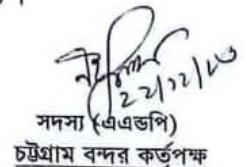 ২২/১২/২৩
সদস্য (এএন্ডপি)
চট্টগ্রাম বন্দর কর্তৃপক্ষ